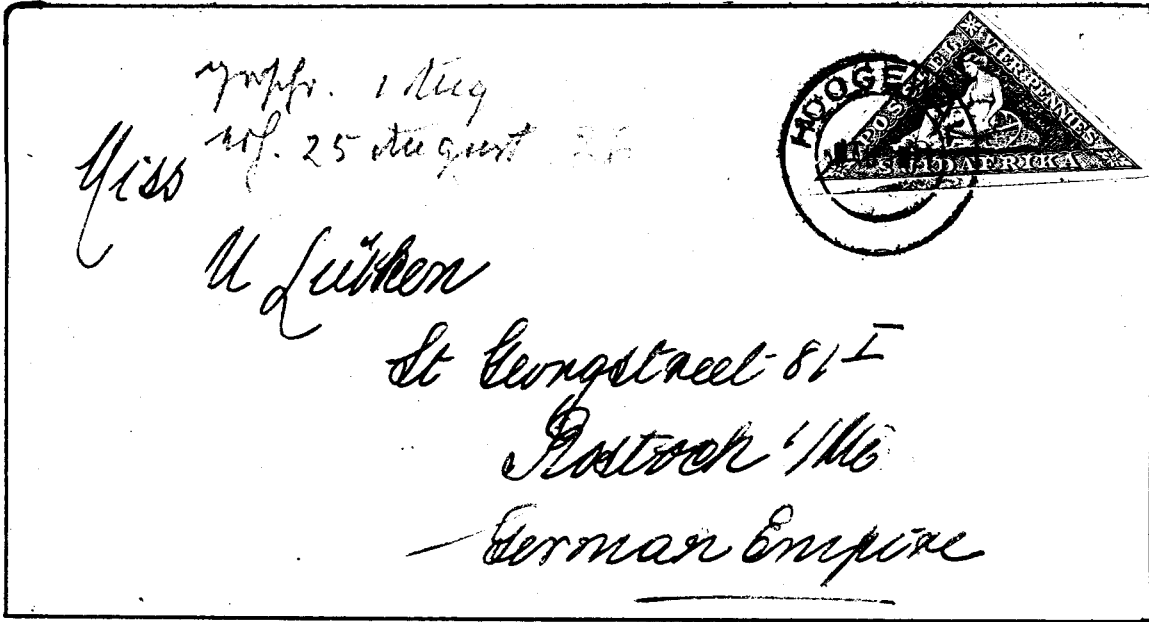 1 Aug
25 August 26
Miss
U Lübken
St Georgstreet 81 I
Rostock i/Me
German Empire
HOOGE
POSSEËL VIER PENNIES
SUIDAFRIKA